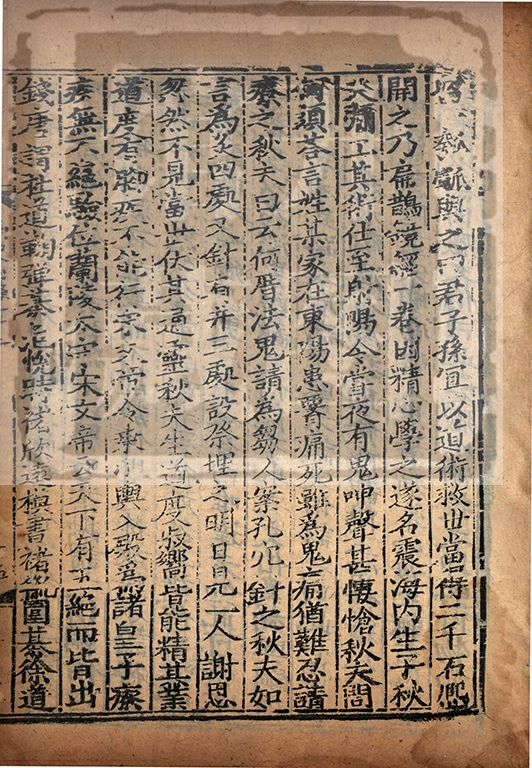 與之曰君子孫宜以道術救世當得二千石熈
開之乃扁鵲鏡經一卷因精心學之遂名震海内生子秋
夫彌工其術仕至射陽令嘗夜有鬼呻聲甚悽愴秋夫問
何須荅言姓某家在東陽患腰痛死雖為鬼痛猶難忍請
療之秋夫曰云何厝法鬼請為芻人案孔穴針之秋夫如
言為灸四處又針肩井三處設祭埋之明日見一人謝恩
忽然不見當世伏其通靈秋夫生道度叔嚮皆能精其業
道度有脚疾不能行宋文帝令乘小輿入殿為諸皇子療
疾無不絶驗位蘭陵太守宋文帝云天下有五絶而皆出
錢唐謂杜道鞠彈棊范悅詩褚欣遠模書褚胤圍棊徐道